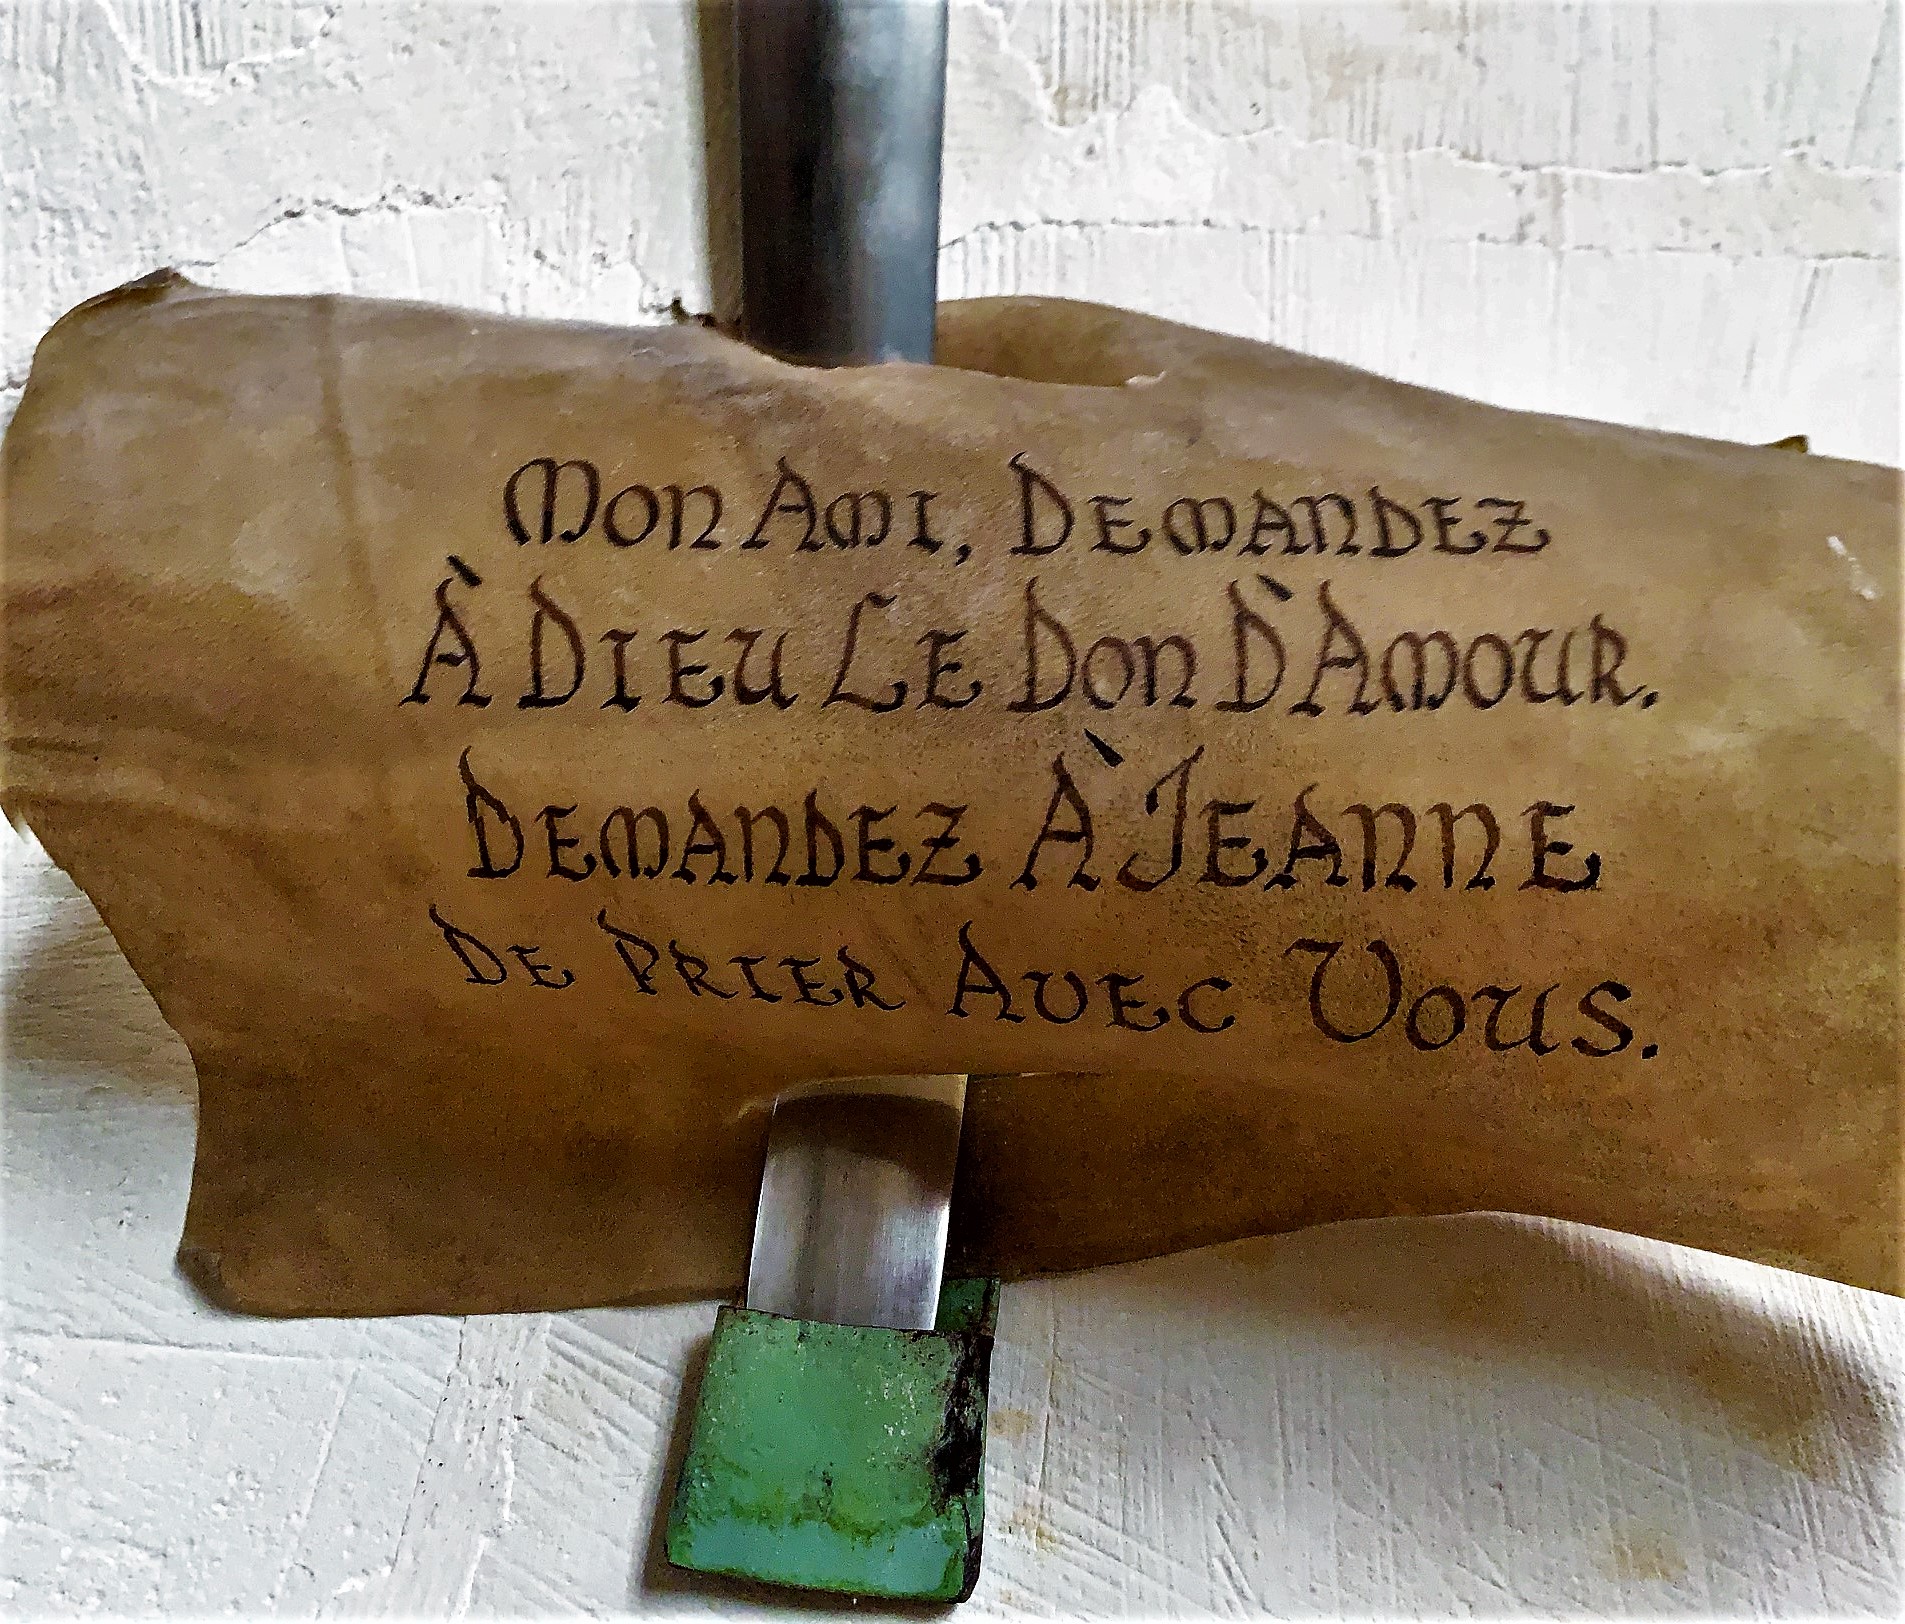 Mon Ami, Demandez
À Dieu Le Don D'Amour.
Demandez À Jeanne
De Prier Avec Vous.